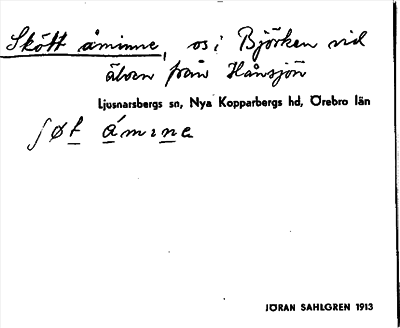 Skött åminne, os i Björken vid
älven från Hånsjön
Ljusnarsbergs sn, Nya Kopparbergs hd, Örebro län
ʃøt åmɩne
JÖRAN SAHLGREN 1913